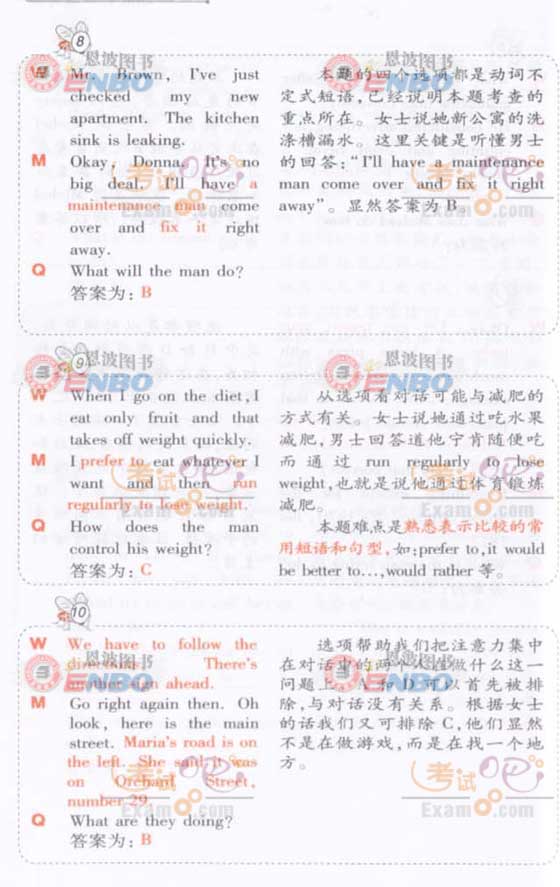 8
W Mr. Brown, I've just
checked my new
apartment. The kitchen
sink is leaking.
M Okay, Donna. It's no
big deal. I'll have a
maintenance man come
over and fix it right
away.
Q What will the man do?
答案为：B
本题的四个选项都是动词不
定式短语，已经说明本题考查的
重点所在。女士说她新公寓的洗
涤槽漏水。这里关键是听懂男士
的回答：“I'll have a maintenance
man come over and fix it right
away”。显然答案为 B。
9
W When I go on the diet, I
eat only fruit and that
takes off weight quickly.
M I prefer to eat whatever I
want and then run
regularly to lose weight.
Q How does the man
control his weight?
答案为：C
从选项看对话可能与减肥的
方式有关。女士说她通过吃水果
减肥，男士回答道他宁肯随便吃
而通过 run regularly to lose
weight，也就是说他通过体育锻炼
减肥。
本题难点是熟悉表示比较的常
用短语和句型，如：prefer to, it would
be better to…, would rather 等。
10
W We have to follow the
directions. There's
another sign ahead.
M Go right again then. Oh
look, here is the main
street. Maria's road is on
the left. She said it was
on Orchard Street,
number 29.
Q What are they doing?
答案为：B
选项帮助我们把注意力集中
在对话中的两个人在做什么这一
问题上。A 和 D 可以首先被排
除，与对话没有关系。根据女士
的话我们又可排除 C，他们显然
不是在做游戏，而是在找一个地
方。
恩波图书
ENBO
恩波图书
ENBO
考试吧
Exam8.com
考试吧
Exam8.com
恩波图书
ENBO
恩波图书
ENBO
考试吧
Exam8.com
考试吧
Exam8.com
恩波图书
ENBO
恩波图书
ENBO
考试吧
Exam8.com
考试吧
Exam8.com